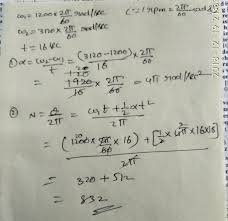 ω₁ = 1200 × 2π/60 rad/sec (∵ 1 rpm = 2π/60 rad/s)
ω₂ = 3120 × 2π/60 rad/sec
t = 16 sec
① α = (ω₂ - ω₁)/t = (3120 - 1200)/16 × 2π/60
= 1920/16 × 2π/60 = 4π rad/sec²
② N = θ/2π = (ω₁t + ½αt²)/2π
= ((1200 × 2π/60 × 16) + [½ × 4π × 16 × 16])/2π
= 320 + 512
= 832